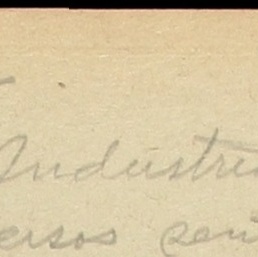 Industri
ersos peri